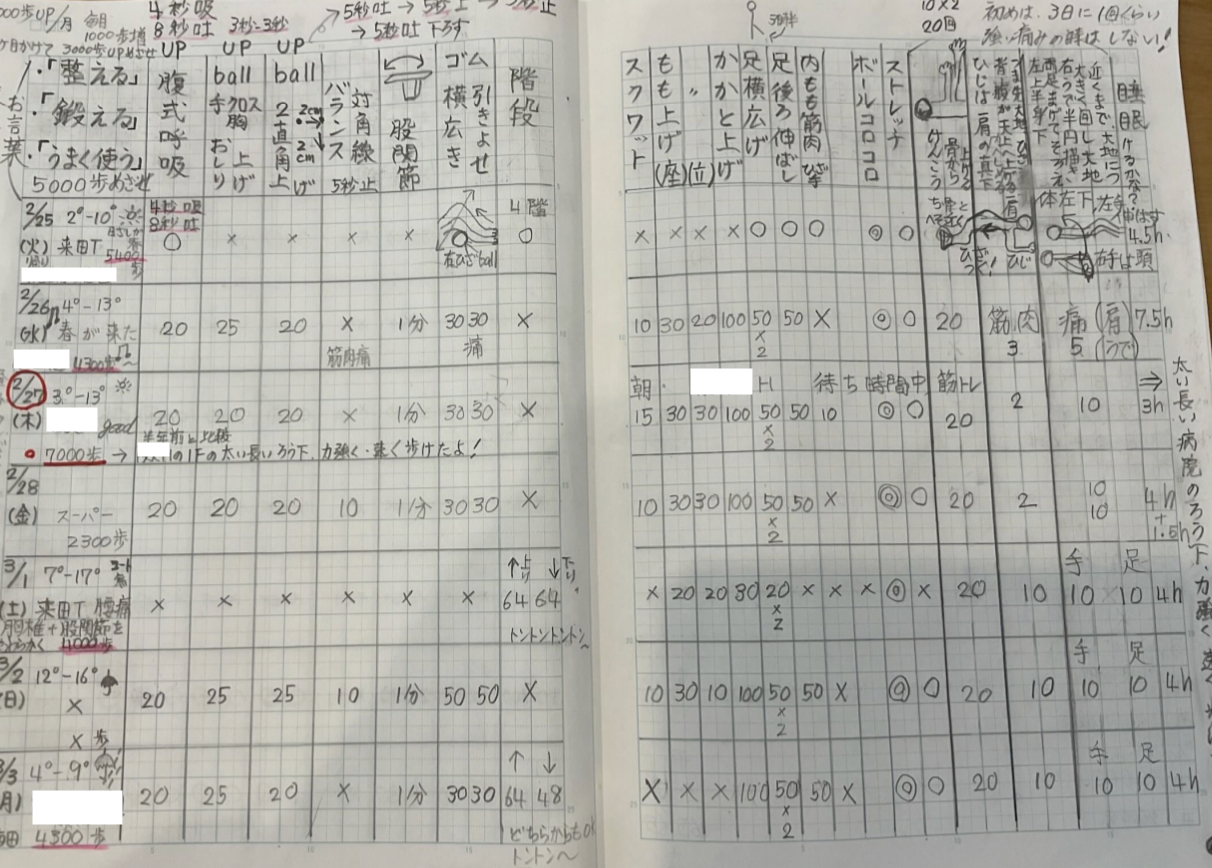 00歩UP/月 毎月
1000歩増
ヶ月かけて 3000歩UPめざせ
4秒吸
8秒吐
3秒-3秒
5秒吐→5秒上
→5秒吐 下ろす
お言葉
・「整える」
・「鍛える」
・「うまく使う」
5000歩めざせ
UP 腹式呼吸
UP ball 手クロス胸 おしり上げ
UP ball 2cm 2cm 直角上げ
バランス 対角線 5秒止
股関節
ゴム 横広き 引きよせ
階段
2/25 2°-10°
(火) 来田T 5400歩
4秒吸
8秒吐
○ × × × × 4階 ○
右ひざball
2/26 4°-13°
(水) 春が来た
4300歩
20 25 20 × 1分 30 30 ×
筋肉痛 痛
2/27 3°-13°
(木) good
20 20 20 × 1分 30 30 ×
半年前と比較
7000歩 → の1Fの太い長いろう下、力強く・速く歩けたよ!
2/28
(金) スーパー
2300歩
20 20 20 10 1分 30 30 ×
3/1 7°-17° コート
(土) 来田T 腰痛
胸椎+股関節を
4000歩
× × × × × × ↑上り 64 ↓下り 64
トントントントン〜
3/2 12°-16°
(日) ×
×歩
20 25 25 10 1分 50 50 ×
3/3 4°-9°
(月)
4300歩
20 25 20 × 1分 30 30 ↑64 ↓48
どちらからもOK
トントン〜
スクワット
もも上げ(座)
〃(位)
かかと上げ
足横広げ
足後ろ伸ばし
内もも筋肉 ひざ
ボールコロコロ
ストレッチ
10×2
20回
初めは、3日に1回くらい
強い痛みの時はしない!
ひじは肩の真下
近くまで、大地につ
大きく回し大地
右うで半円描き
両足まげてそろえ
左上半身下
睡眠
× × × × ○ ○ ○ ◎ ○
体左下、左手伸ばす
右手は頭
4.5h
10 30 20 100 50×2 50 × ◎ ○ 20 筋肉 3 痛 5 (肩)(うで) 7.5h
朝・ 待ち時間中 筋トレ
15 30 30 100 50×2 50 10 ◎ ○ 20 2 10 ⇒3h
10 30 30 100 50×2 50 × ◎ ○ 20 2 10 10 4h+1.5h
手 足
× 20 20 30 20×2 × × × ◎ × 20 10 10 10 4h
手 足
10 30 10 100 50×2 50 × ◎ ○ 20 10 10 10 4h
手 足
× × × 100 50×2 50 × ◎ ○ 20 10 10 10 4h
太い長い病院のろう下、力強く